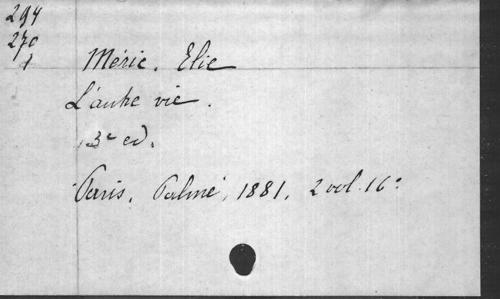 294
270
1
Méric. Elie
L'autre vie.
3e ed.
Paris, Palmé, 1881, 2 vol. 16°